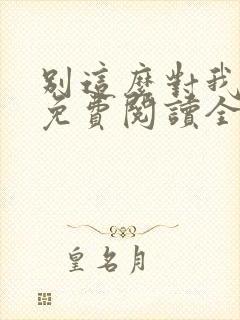 別這麼對我
免費閱讀全
皇名月